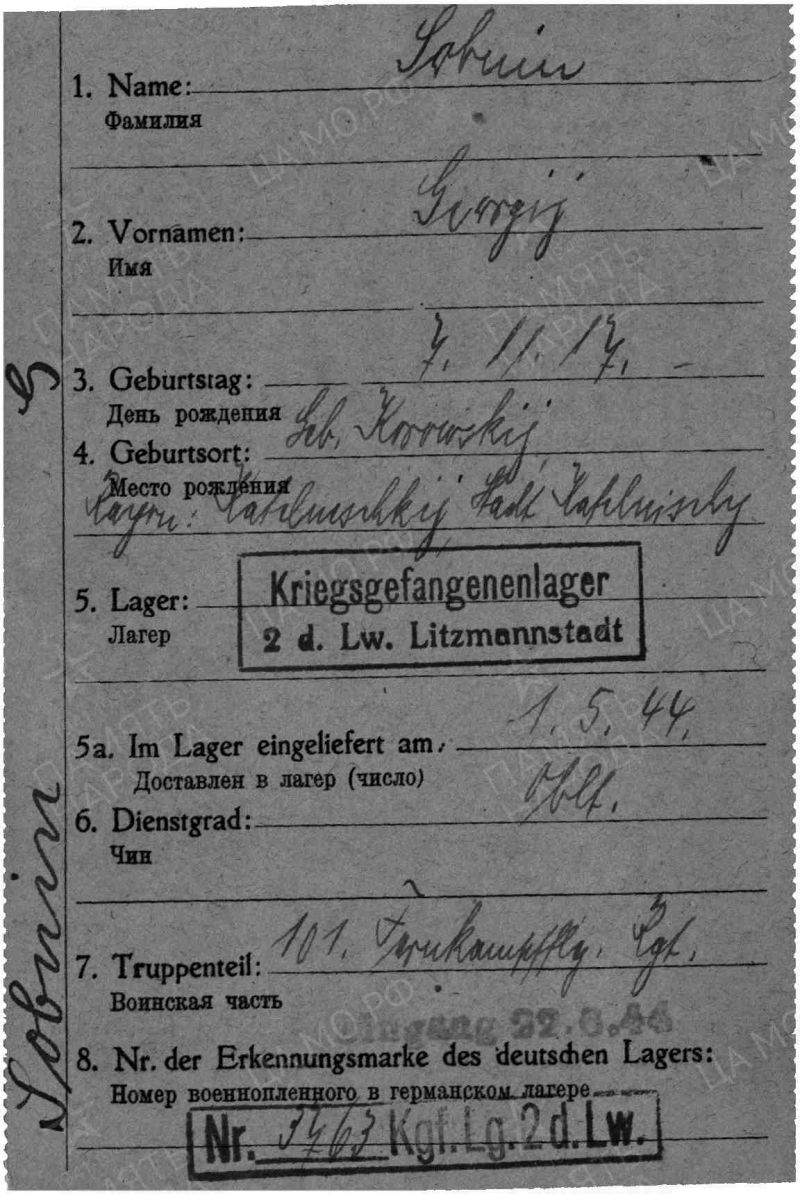 1. Name: Sobnin
Фамилия
2. Vornamen: Georgij
Имя
3. Geburtstag: 7. 11. 17. –
День рождения
4. Geburtsort: Geb.
Место рождения
Rayon: Stadt
5. Lager: Kriegsgefangenenlager
Лагер 2 d. Lw. Litzmannstadt
5a. Im Lager eingeliefert am: 1. 5. 44.
Доставлен в лагер (число)
6. Dienstgrad: Oblt.
Чин
7. Truppenteil: 101. Fernkampfflg. Rgt.
Воинская часть
Eingang 22.6.44
8. Nr. der Erkennungsmarke des deutschen Lagers:
Номер военнопленного в германском лагере
Nr. 3763 Kgf. Lg. 2 d. Lw.
Sobnin G
ЦА МО РФ
ПАМЯТЬ НАРОДА